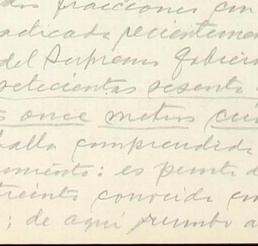 dos fracciones con
acticada recientemen
del Supremo Gobier
setecientas sesenta
s once metros cu
halla comprendida
imiento: es punto d
treinta conocida con
; de aquí rumbo a